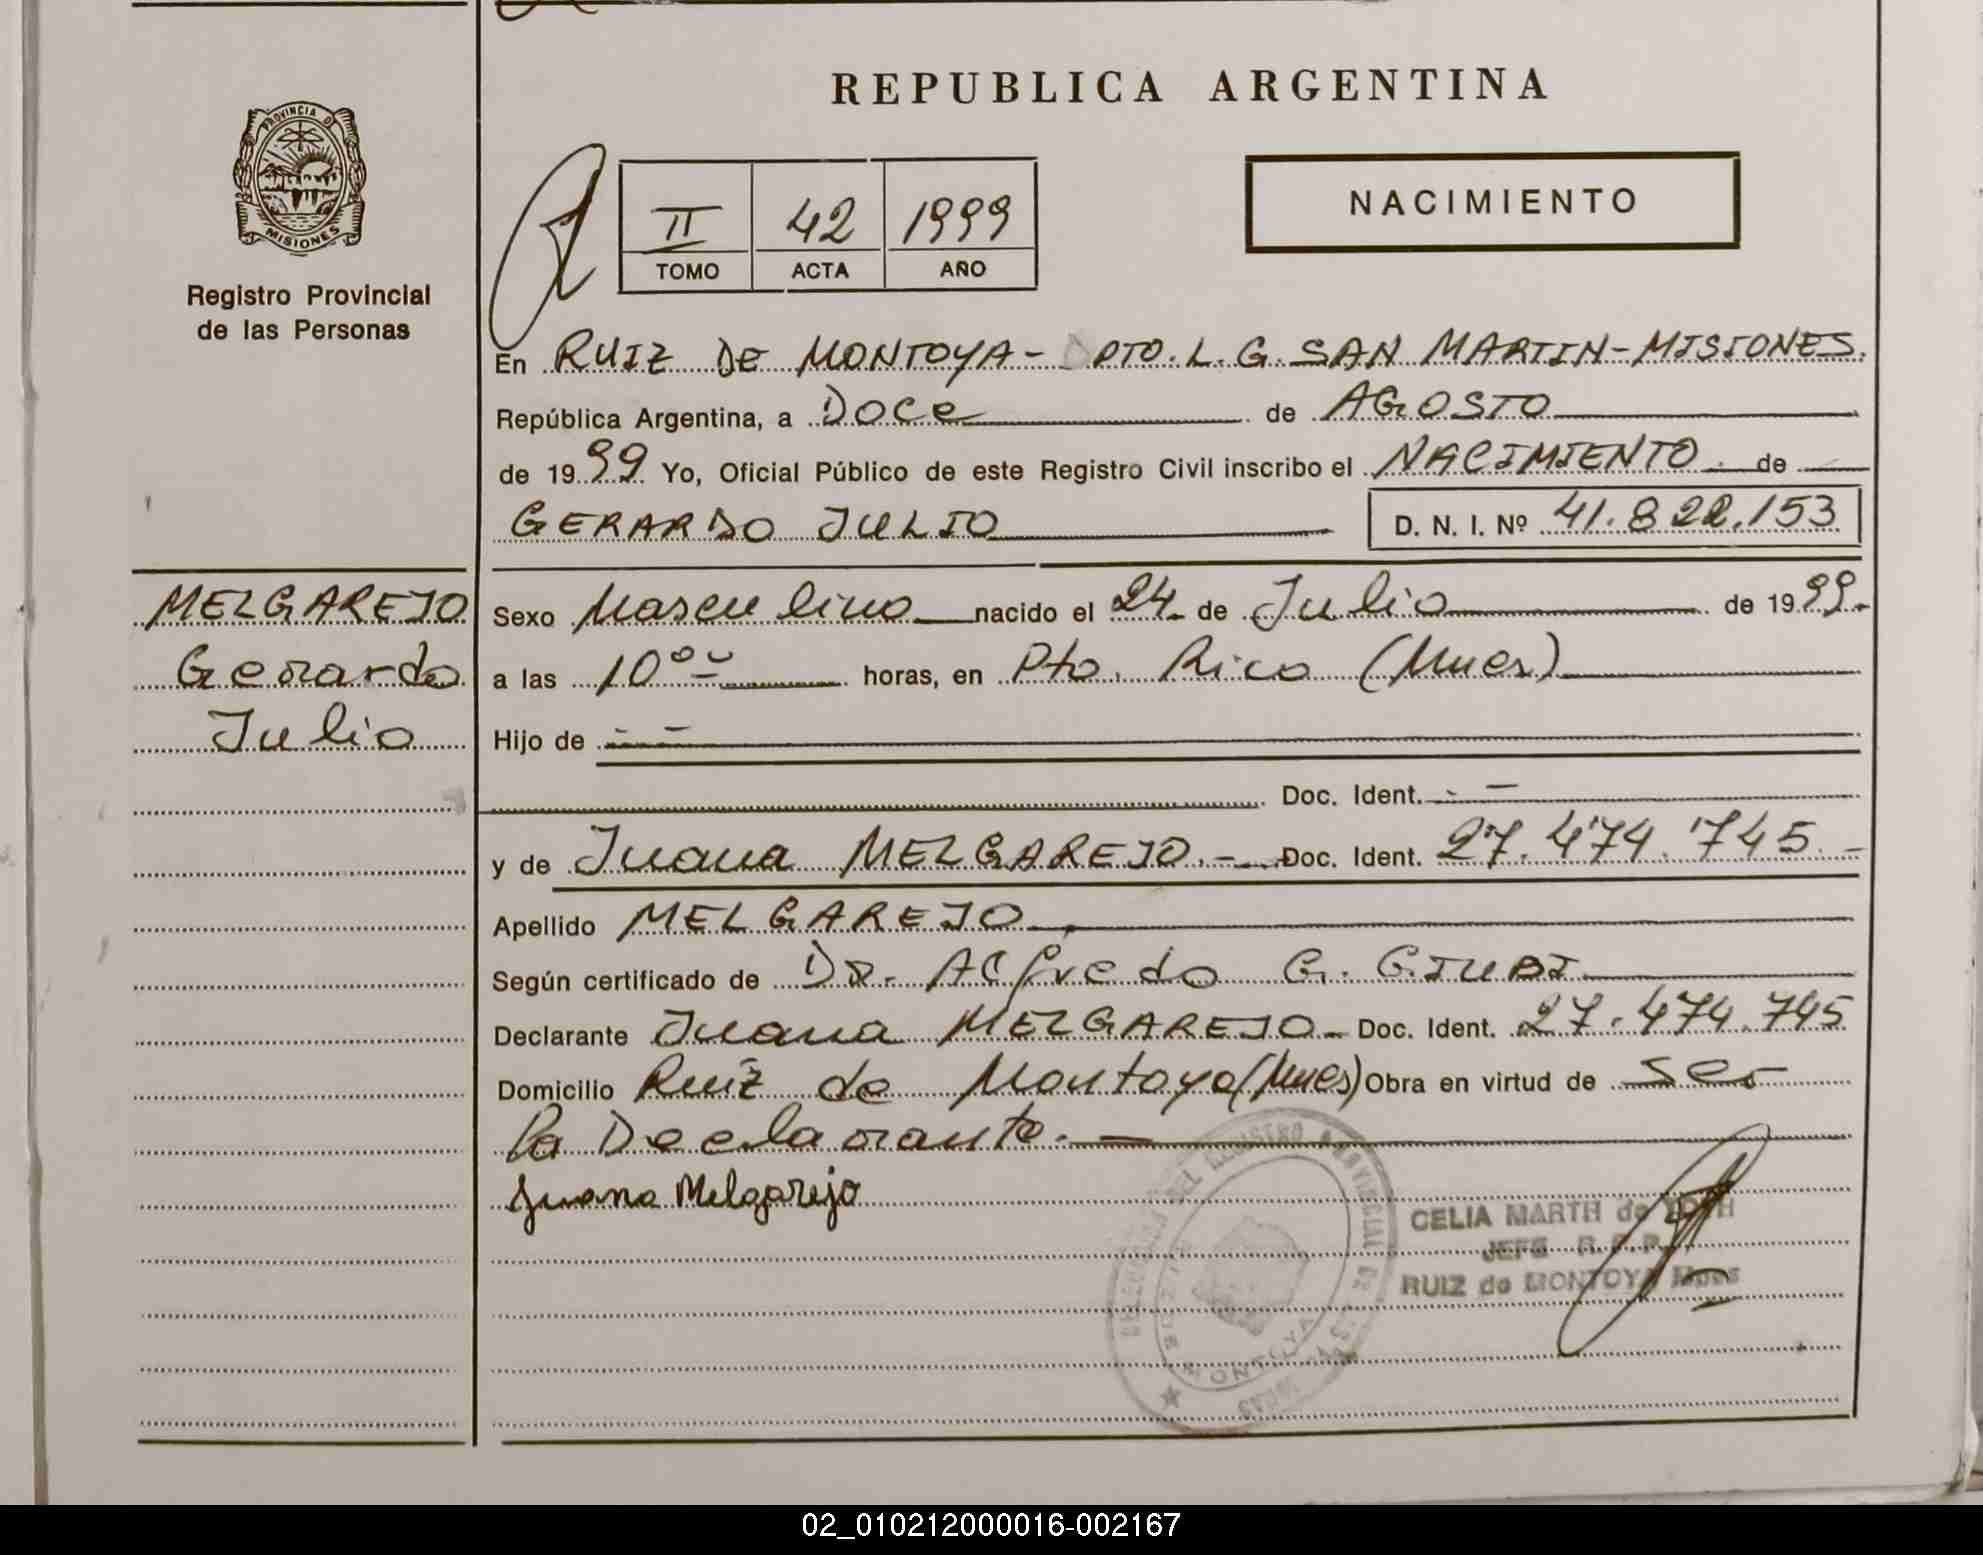 REPUBLICA ARGENTINA
PROVINCIA D
MISIONES
Registro Provincial
de las Personas
II 42 1999
TOMO ACTA AÑO
NACIMIENTO
En RUIZ DE MONTOYA - DPTO. L. G. SAN MARTIN - MISIONES.
República Argentina, a Doce de AGOSTO
de 1999 Yo, Oficial Público de este Registro Civil inscribo el NACIMIENTO de
GERARDO JULIO D. N. I. Nº 41.822.153
MELGAREJO
Gerardo
Julio
Sexo Masculino nacido el 24 de Julio de 1999.-
a las 10°° horas, en Pto. Rico (Mnes)
Hijo de - -
Doc. Ident. - -
y de Juana MELGAREJO.- Doc. Ident. 27.474.745.-
Apellido MELGAREJO
Según certificado de Dr. Alfredo G. GIUBI
Declarante Juana MELGAREJO- Doc. Ident. 27.474.745
Domicilio Ruiz de Montoya (Mnes) Obra en virtud de ser
la Declarante.-
Juana Melgarejo
DEL REGISTRO PROVINCIAL DE LAS
MONTOYA
CELIA MARTH de
JEFE R.P.P.
RUIZ de MONTOYA Mnes
02_010212000016-002167